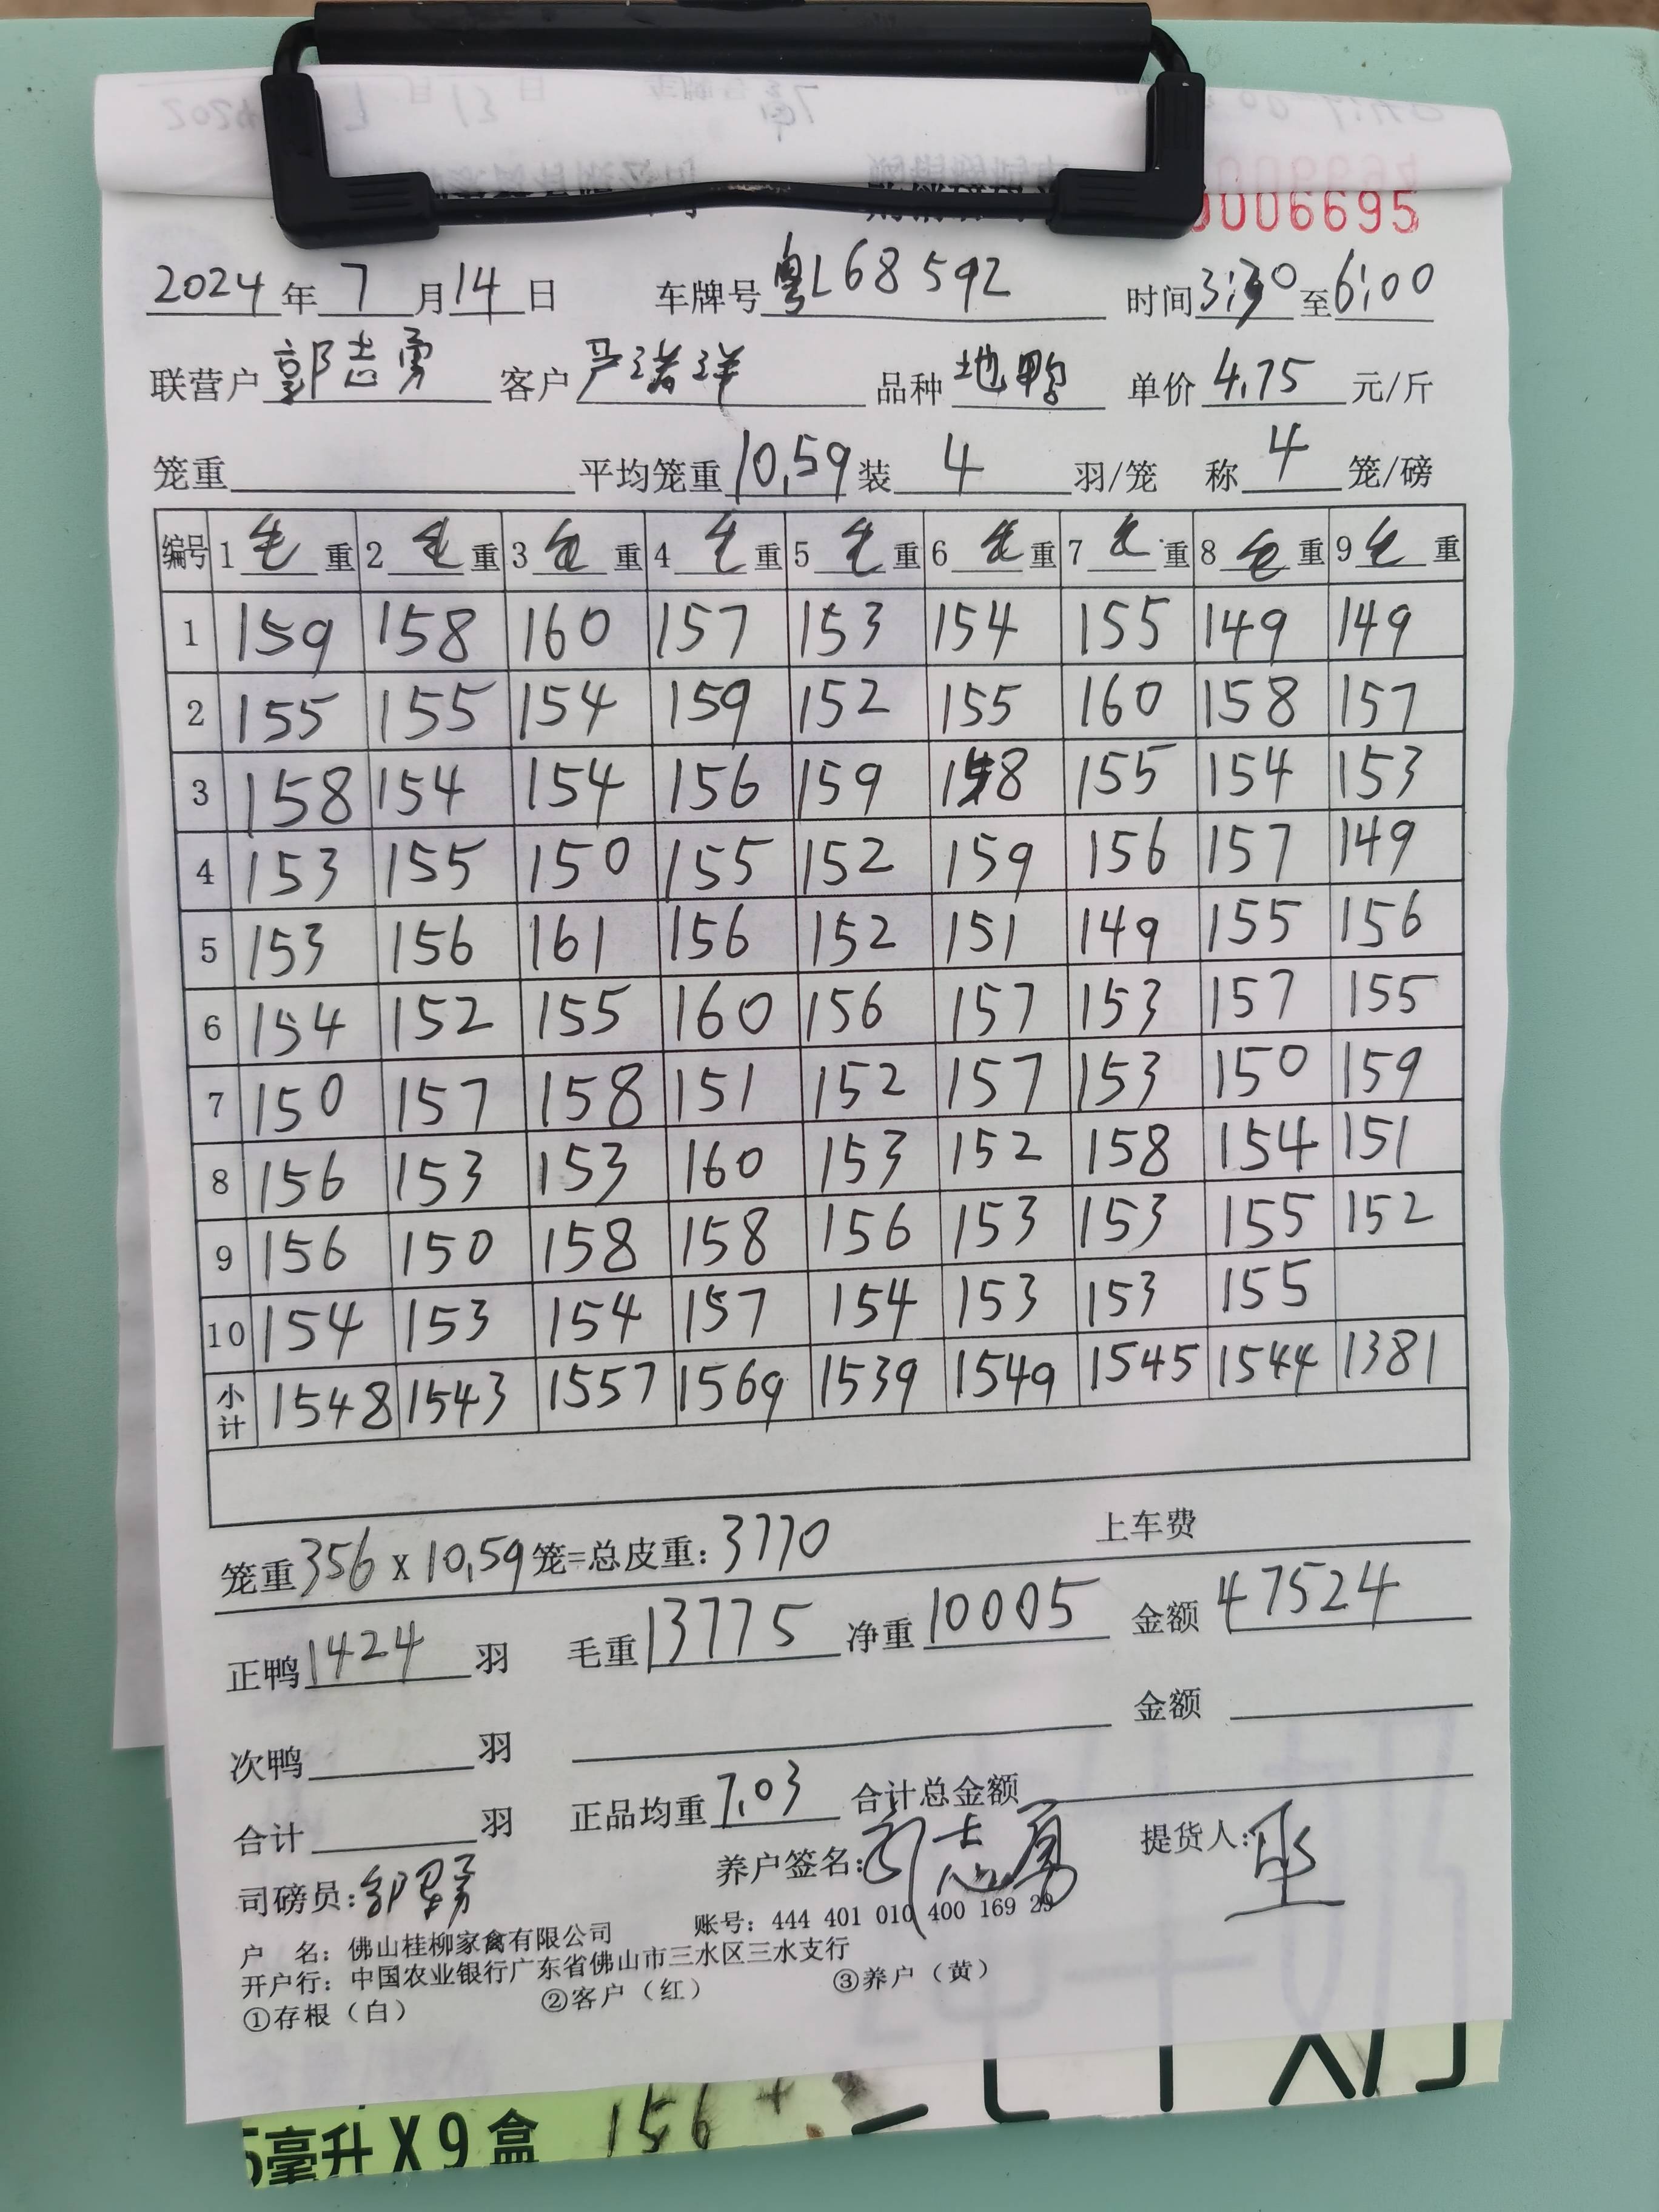 0006695
2024年7月14日 车牌号粤L68592 时间3:30至6:00
联营户郭志勇 客户严绪洋 品种地鸭 单价4.75元/斤
笼重 平均笼重10.59装4羽/笼 称4笼/磅
编号 1毛重 2毛重 3毛重 4毛重 5毛重 6毛重 7毛重 8毛重 9毛重
1 159 158 160 157 153 154 155 149 149
2 155 155 154 159 152 155 160 158 157
3 158 154 154 156 159 158 155 154 153
4 153 155 150 155 152 159 156 157 149
5 153 156 161 156 152 151 149 155 156
6 154 152 155 160 156 157 153 157 155
7 150 157 158 151 152 157 153 150 159
8 156 153 153 160 153 152 158 154 151
9 156 150 158 158 156 153 153 155 152
10 154 153 154 157 154 153 153 155
小计 1548 1543 1557 1569 1539 1549 1545 1544 1381
笼重356x10.59笼=总皮重：3770 上车费
正鸭1424羽 毛重13775 净重10005 金额47524
次鸭 羽 金额
合计 羽 正品均重7.03 合计总金额
司磅员： 养户签名：郭志勇 提货人：
户 名：佛山桂柳家禽有限公司 账号：444 401 010 400 169 29
开户行：中国农业银行广东省佛山市三水区三水支行
①存根（白） ②客户（红） ③养户（黄）
5毫升X9盒 156